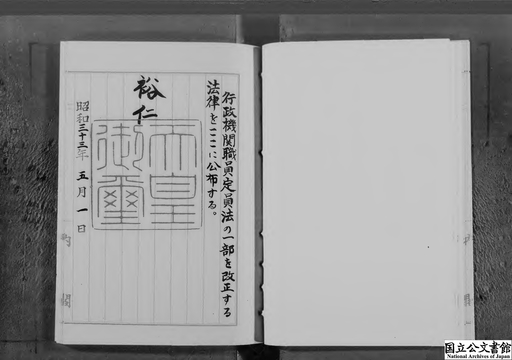 行政機関職員定員法の一部を改正する
法律をここに公布する。
裕仁
天皇
御璽
昭和三十三年五月一日
内閣
国立公文書館
National Archives of Japan